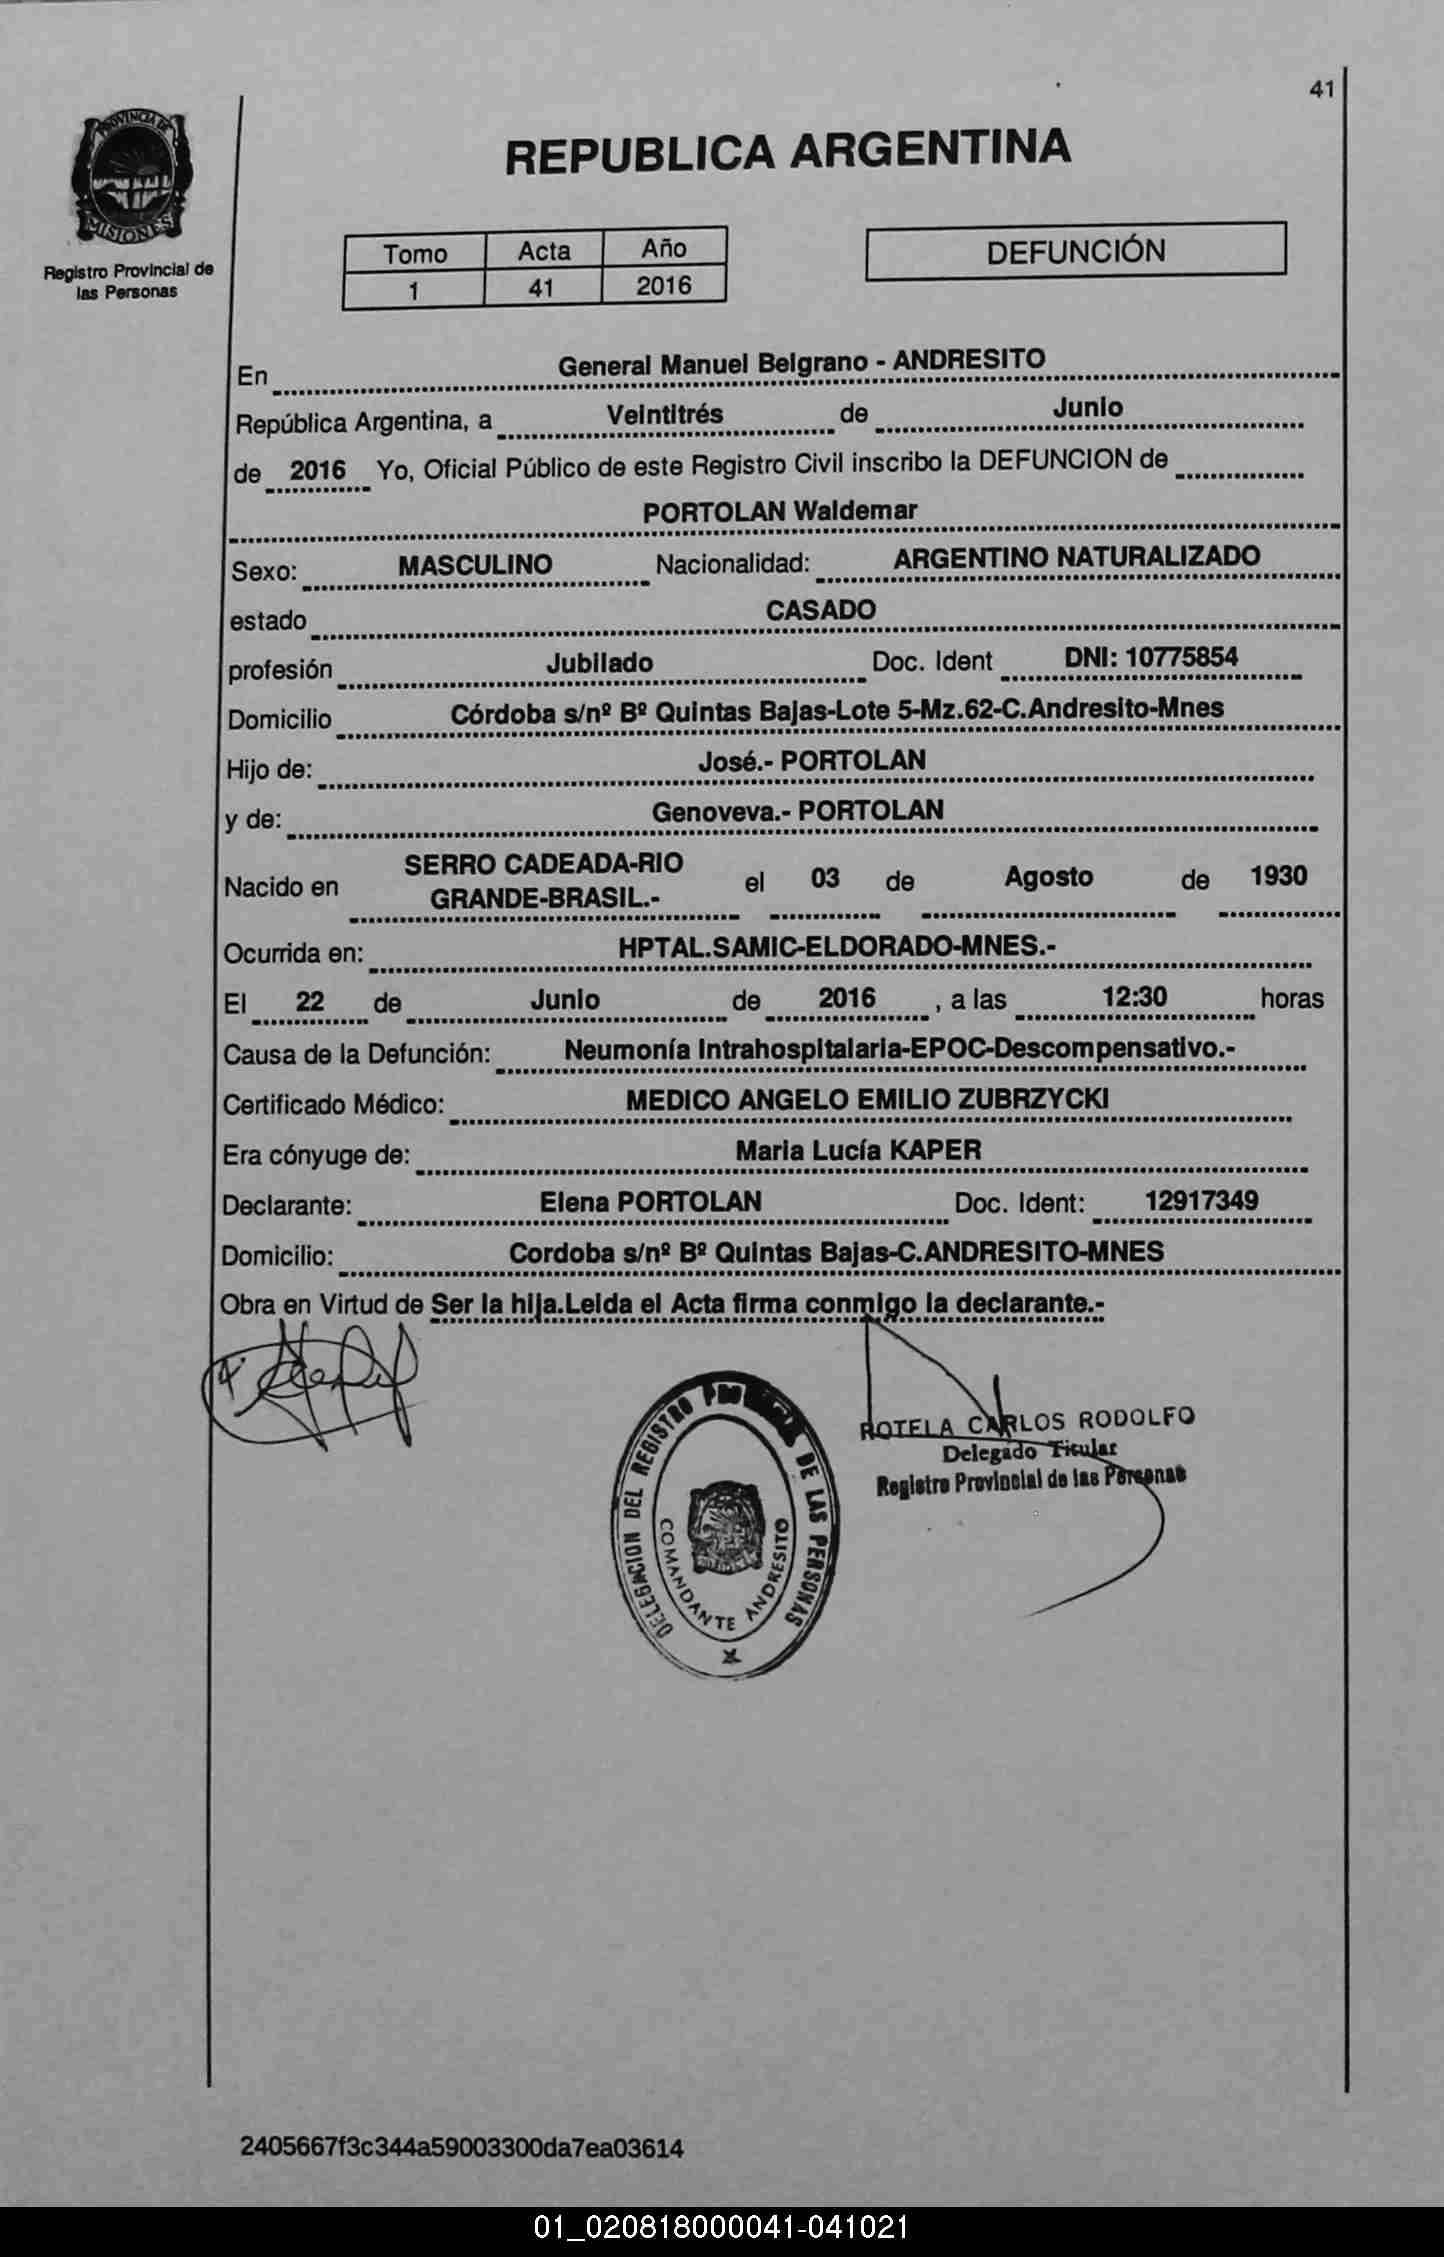 41
PROVINCIA DE
MISIONES
Registro Provincial de
las Personas
REPUBLICA ARGENTINA
Tomo Acta Año
1 41 2016
DEFUNCIÓN
En General Manuel Belgrano - ANDRESITO
República Argentina, a Veintitrés de Junio
de 2016 Yo, Oficial Público de este Registro Civil inscribo la DEFUNCION de
PORTOLAN Waldemar
Sexo: MASCULINO Nacionalidad: ARGENTINO NATURALIZADO
estado CASADO
profesión Jubilado Doc. Ident DNI: 10775854
Domicilio Córdoba s/nº Bº Quintas Bajas-Lote 5-Mz.62-C.Andresito-Mnes
Hijo de: José.- PORTOLAN
y de: Genoveva.- PORTOLAN
Nacido en SERRO CADEADA-RIO GRANDE-BRASIL.- el 03 de Agosto de 1930
Ocurrida en: HPTAL.SAMIC-ELDORADO-MNES.-
El 22 de Junio de 2016 , a las 12:30 horas
Causa de la Defunción: Neumonía Intrahospitalaria-EPOC-Descompensativo.-
Certificado Médico: MEDICO ANGELO EMILIO ZUBRZYCKI
Era cónyuge de: Maria Lucía KAPER
Declarante: Elena PORTOLAN Doc. Ident: 12917349
Domicilio: Cordoba s/nº Bº Quintas Bajas-C.ANDRESITO-MNES
Obra en Virtud de Ser la hija.Leida el Acta firma conmigo la declarante.-
DELEGACION DEL REGISTRO DE LAS PERSONAS
COMANDANTE ANDRESITO
ROTELA CARLOS RODOLFO
Delegado Titular
Registro Provincial de las Personas
2405667f3c344a59003300da7ea03614
01_020818000041-041021